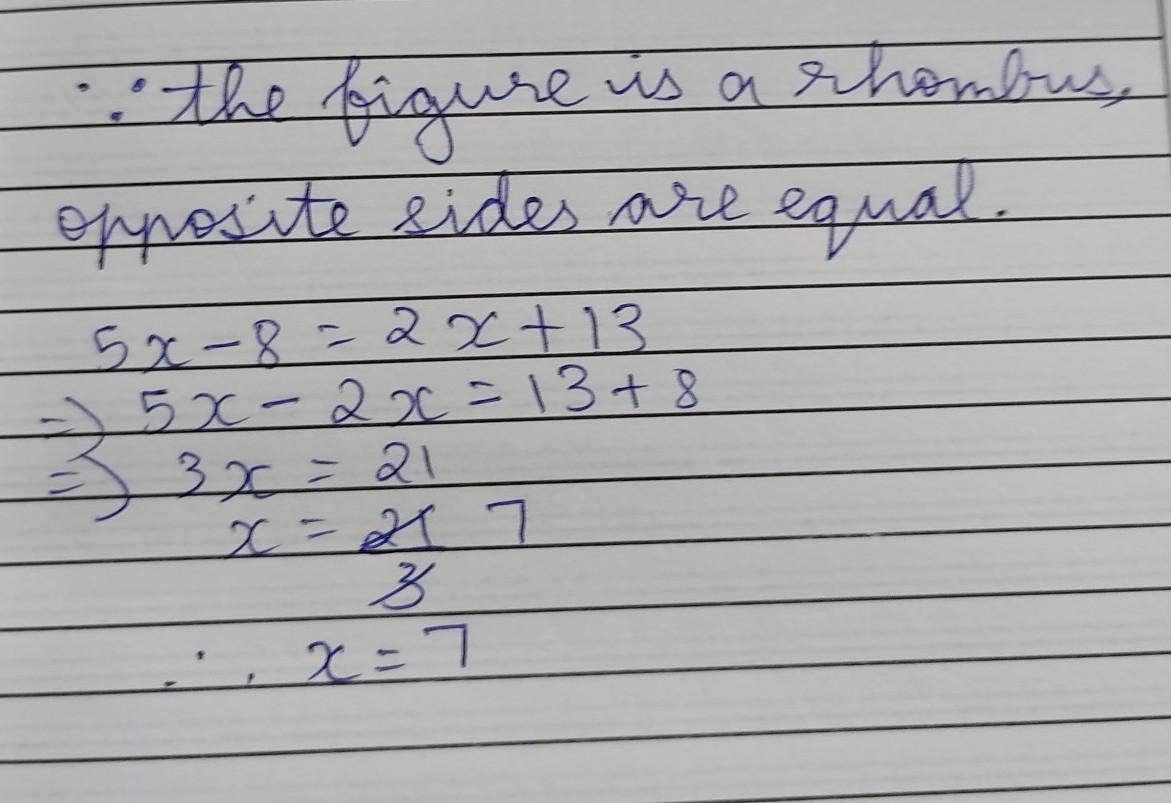 ∵ the figure is a rhombus,
opposite sides are equal.
5x - 8 = 2x + 13
=> 5x - 2x = 13 + 8
=> 3x = 21
x = 21/3 7
∴ x = 7